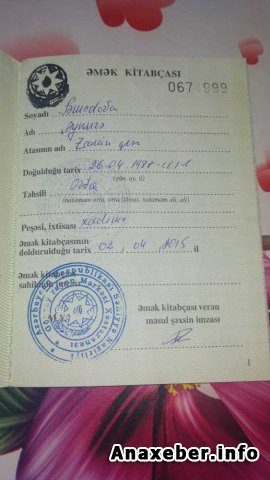 ƏMƏK KİTABÇASI
0674999
Soyadı Səmədova
Adı Aynurə
Atasının adı Zamin qızı
Doğulduğu tarix 26.04.1987-ci il
(gün, ay, il)
Təhsili Orta
(natamam orta, orta (ixtisas, natamam ali, ali)
Peşəsi, ixtisası xadimə
Əmək kitabçasının
doldurulduğu tarix 02, 04, 2015 il
Əmək kitabçası
sahibinin imzası
Əmək kitabçası verən
məsul şəxsin imzası
M.Y.
1
Anaxeber.info